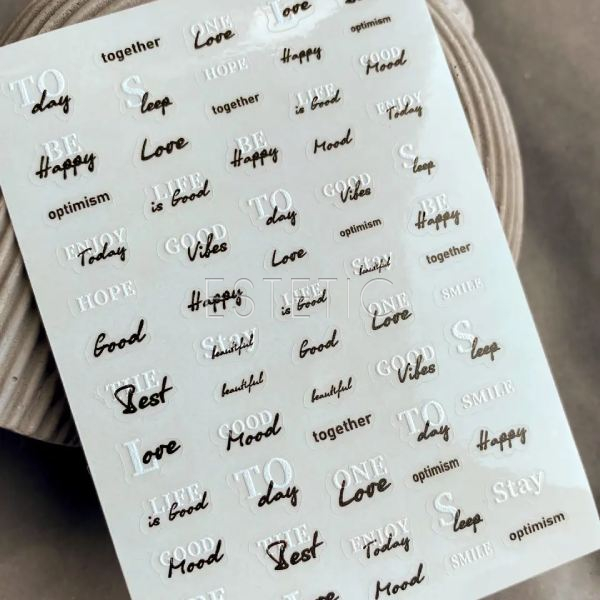 together
ONE
Love
Love
optimism
TO
day
S
leep
HOPE
Happy
GOOD
Mood
BE
Happy
Love
together
LIFE
is Good
ENJOY
Today
optimism
LIFE
is Good
BE
Happy
Mood
S
leep
ENJOY
Today
GOOD
Vibes
TO
day
GOOD
Vibes
BE
Happy
HOPE
Happy
Love
optimism
together
Good
Stay
beautiful
LIFE
is Good
Stay
beautiful
SMILE
THE
Best
beautiful
Good
ONE
Love
S
leep
Love
GOOD
Mood
beautiful
GOOD
Vibes
SMILE
LIFE
is Good
TO
day
together
TO
day
Happy
GOOD
Mood
THE
Best
ONE
Love
optimism
Stay
ENJOY
Today
S
leep
optimism
Love
Mood
SMILE
ESTETIC